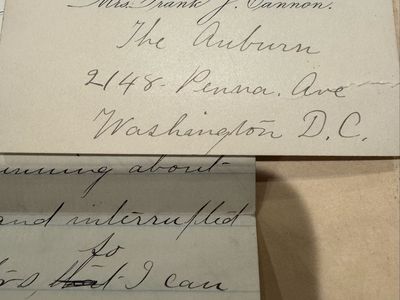 Mrs. Frank J. Cannon.
The Auburn
2148 - Penna. Ave
Washington D. C.
inning about
and interrupted
to
that I can